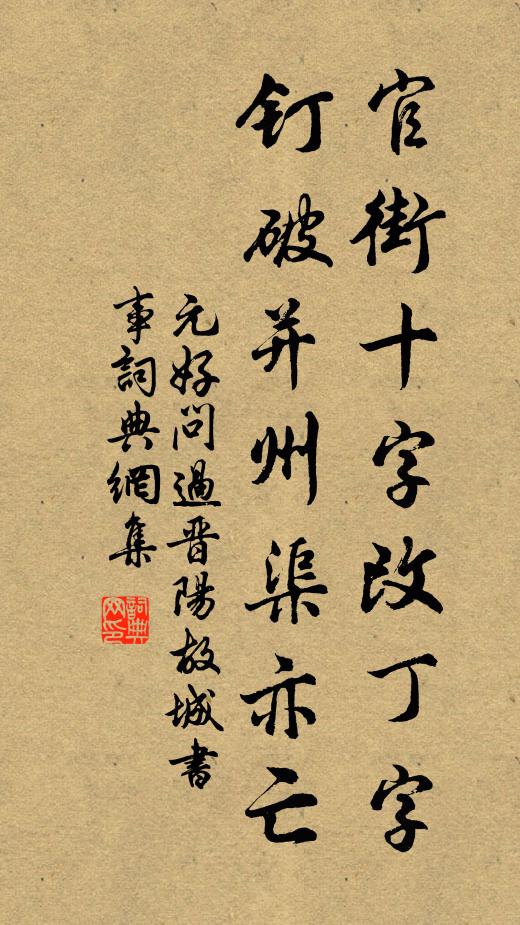 官街十字改丁字
釘破并州渠亦亡
元好問過晋陽故城書
事詞典網集
詞典網印